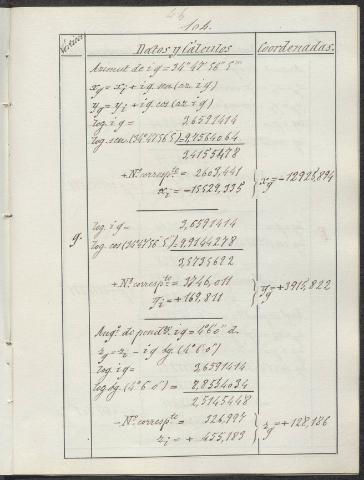 104.
Vértices
Datos y Cálculos
Coordenadas.
Azimut de ig = 34° 47' 56" 5'''
xg = xi + ig. sen (az. ig)
yg = yi + ig. cos (az. ig)
log. ig = 3,6591414
log. sen. (34° 47' 56" 5) = 9,7564064
3,4155478
+ N.º correspte = 2603,441
xi = -15529,335
xg = -12925,894
g.
log. ig = 3,6591414
log. cos (34° 47' 56" 5) = 9,9144278
3,5735692
+ N.º correspte = 3746,011
Yi = +169,811
yg = +3915,822
Ang.º de pend.te ig = 4° 6' 0" d.
zg = zi - ig tg. (4° 6' 0")
log. ig = 3,6591414
log. tg. (4° 6' 0") = 8,8554034
2,5145448
- N.º correspte = 326,997
zi = + 455,183
zg = +128,186